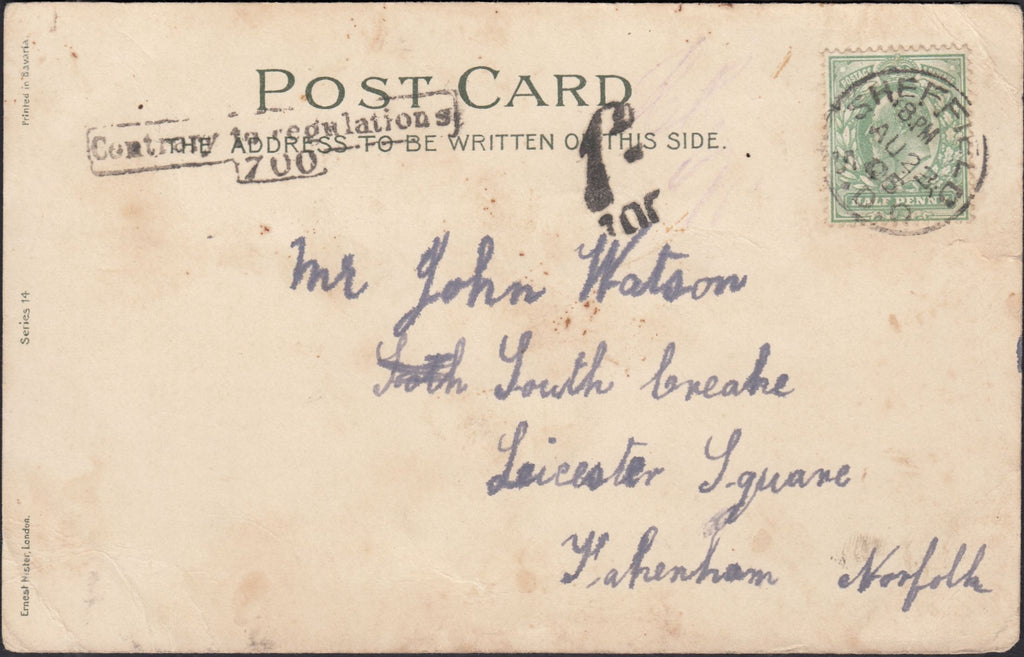 POST CARD
Contrary to regulations
700
THE ADDRESS TO BE WRITTEN ON THIS SIDE.
SHEFFIELD
8 PM
AU 23
05
HALF PENNY
1d.
Mr John Watson
South Creake
Leicester Square
Fakenham Norfolk
Printed in Bavaria.
Series 14
Ernest Nister, London.